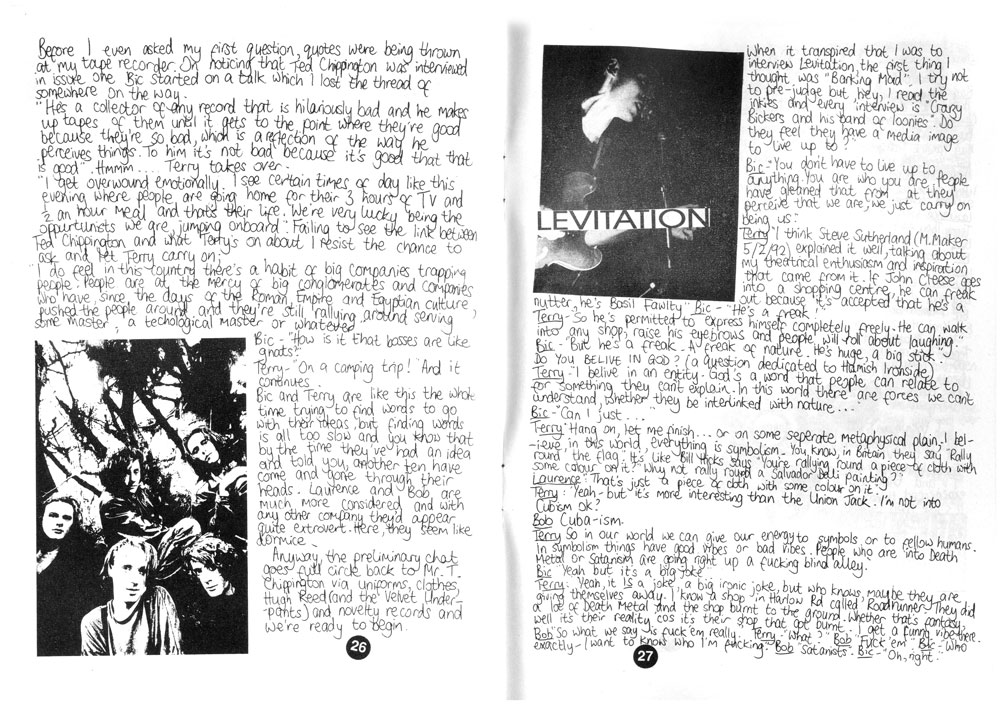 Before I even asked my first question, quotes were being thrown
at my tape recorder. On noticing that Ted Chippington was interviewed
in issue one Bic started on a talk which I lost the thread of
somewhere on the way.
"He's a collector of any record that is hilariously bad and he makes
up tapes of them until it gets to the point where they're good
because they're so bad, which is a reflection of the way he
perceives things. To him it's not bad because it's good that that
is good". Hmmm... Terry takes over
"I get overwound emotionally. I see certain times of day like this
evening where people are going home for their 3 hours of TV and
½ an hour meal and that's their life. We're very lucky being the
oppurtunists we are, jumping onboard". Failing to see the link between
Ted Chippington and what Terry's on about I resist the chance to
ask and let Terry carry on;
"I do feel in this country there's a habit of big companies trapping
people. People are at the mercy of big conglomerates and companies
who have, since the days of the Roman Empire and Egyptian culture,
pushed the people around and they're still rallying around serving
some master, a techological master or whatever"
Bic - "How is it that bosses are like
gnats?"
Terry - "On a camping trip! And it
continues.
Bic and Terry are like this the whole
time trying to find words to go
with their ideas, but finding words
is all too slow and you know that
by the time they've had an idea
and told you, another ten have
come and gone through their
heads. Laurence and Bob, are
much more considered and with
any other company they'd appear
quite extrovert. Here, they seem like
dormice.
Anyway, the preliminary chat
goes full circle back to Mr. T.
Chippington via uniforms, clothes,
Hugh Reed (and the Velvet Under-
pants) and novelty records and
we're ready to begin.
26
LEVITATION
When it transpired that I was to
interview Levitation, the first thing I
thought was "Barking Mad". I try not
to pre-judge but, hey, I read the
inkies and every interview is "Crazy
Bickers and his band of loonies". Do
they feel they have a media image
to live up to?
Bic - "You don't have to live up to
anything. You are who you are. People
have gleaned that from at they
perceive that we are, we just carry on
being us."
Terry "I think Steve Sutherland (M.Maker
5/2/92) explained it well, talking about
my theatrical enthusiasm and inspiration
that came from it. If John Cleese goes
into a shopping centre, he can freak
out because it's accepted that he's a
nutter, he's Basil Fawlty". Bic - "He's a freak!"
Terry - So he's permitted to express himself completely freely. He can walk
into any shop, raise his eyebrows and people will roll about laughing."
Bic - "But he's a freak. A freak of nature. He's huge, a big stick."
DO YOU BELIVE IN GOD? (a question dedicated to Hamish Ironside)
Terry - "I belive in an entity. God's a word that people can relate to
for something they can't explain. In this world there are forces we can't
understand, whether they be interlinked with nature....
Bic - "Can I just...."
Terry "Hang on, let me finish... or on some seperate metaphysical plain. I bel-
-ieve, in this world, everything is symbolism. You know, in Britain they say "Rally
round the flag". It's like Bill Hicks says "You're rallying round a piece of cloth with
some colour on it". Why not rally round a Salvador Delli painting?"
Laurence: That's just a piece of cloth with some colour on it.
Terry: Yeah - but it's more interesting than the Union Jack. I'm not into
Cub'em OK?
Bob Cuba-ism.
Terry So in our world we can give our energy to symbols or to fellow humans.
In symbolism things have good vibes or bad vibes. People who are into Death
Metal or Satanism are going right up a fucking blind alley.
Bic Yeah but it's a big joke
Terry: Yeah, it IS a joke, a big ironic joke, but who knows, maybe they are
giving themselves away. I know a shop in Harlow Rd called 'Roadrunner'. They did
a lot of Death Metal and the shop burnt to the ground. Whether that's fantasy,
well it's their reality cos it's their shop that got burnt.... I get a funny vibe there.
Bob "So what we say is fuck 'em really". Terry - "What?" Bob "Fuck 'em". Bic - "Who
exactly - I want to know who I'm fucking." Bob "Satanists". Bic - "Oh, right."
27